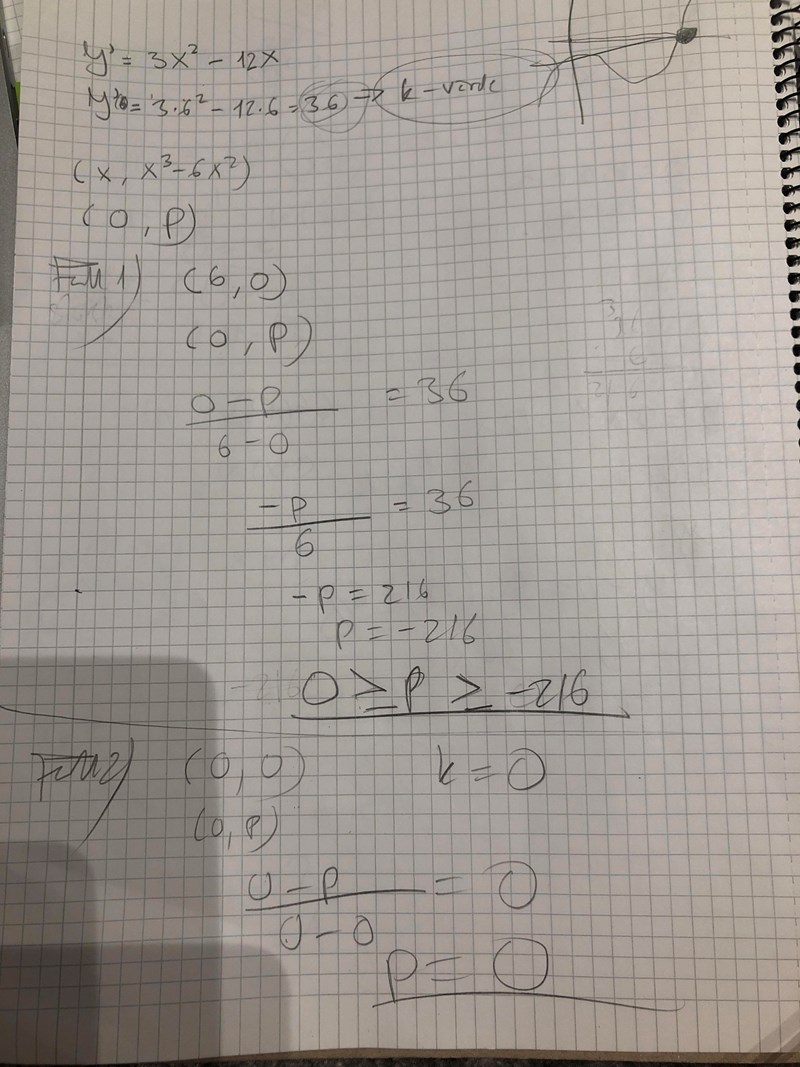 y' = 3x² - 12x
= 3·6² - 12·6 = 36 → k-värde
(x, x³-6x²)
(0, P)
Fall 1) (6, 0)
(0, P)
0 - P
6 - 0
= 36
-P
6
= 36
36
6
216
-P = 216
P = -216
-216
0 ≥ P ≥ -216
Fall 2) (0, 0) k = 0
(0, P)
0 - P
0 - 0
= 0
P = 0